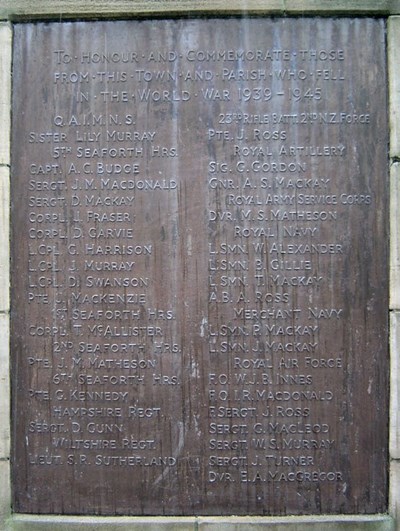 TO · HONOUR · AND · COMMEMORATE · THOSE
FROM · THIS · TOWN · AND · PARISH · WHO · FELL
IN · THE · WORLD · WAR · 1939 – 1945
Q.A.I.M.N.S.
SISTER LILY MURRAY
5TH SEAFORTH HRS.
CAPT. A. C. BUDGE
SERGT. J. M. MACDONALD
SERGT. D. MACKAY
CORPL. J. FRASER
CORPL. D. GARVIE
L.CPL. G. HARRISON
L.CPL. J. MURRAY
L.CPL. D. SWANSON
PTE. J. MACKENZIE
1ST SEAFORTH HRS.
CORPL. T. MCALLISTER
2ND SEAFORTH HRS.
PTE. J. M. MATHESON
6TH SEAFORTH HRS.
PTE. G. KENNEDY
HAMPSHIRE REGT.
SERGT. D. GUNN
WILTSHIRE REGT.
LIEUT. S. R. SUTHERLAND
23RD RIFLE BATT. 21ST N.Z. FORCE
PTE. J. ROSS
ROYAL ARTILLERY
SIG. G. GORDON
GNR. A. S. MACKAY
ROYAL ARMY SERVICE CORPS
DVR. M. S. MATHESON
ROYAL NAVY
L.SMN. W. ALEXANDER
L.SMN. P. GILLIE
L.SMN. T. MACKAY
A.B. A. ROSS
MERCHANT NAVY
L.SMN. P. MACKAY
L.SMN. J. MACKAY
ROYAL AIR FORCE
F.O. W. J. B. INNES
F.O. I. R. MACDONALD
F.SERGT. J. ROSS
SERGT. G. MACLEOD
SERGT. W. S. MURRAY
SERGT. J. TURNER
DVR. E. A. MACGREGOR